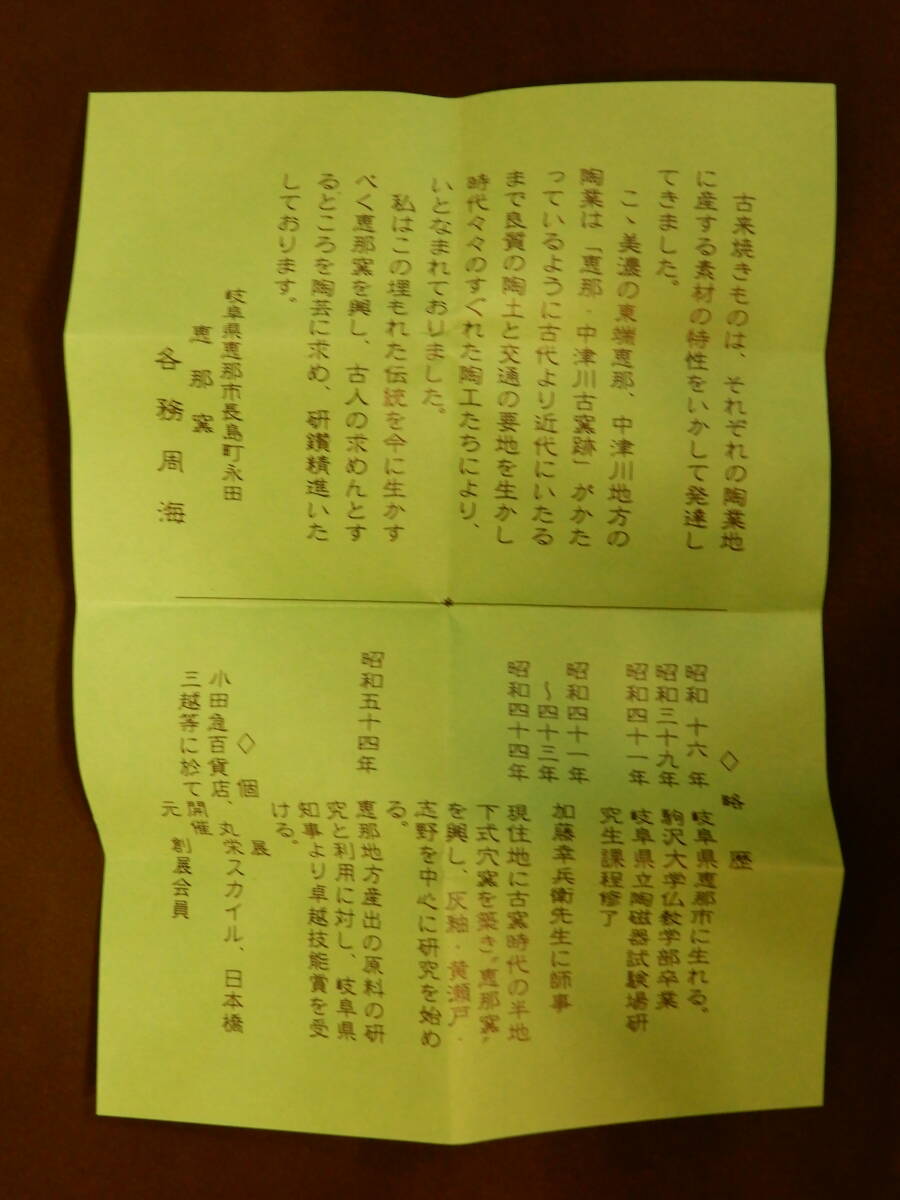 古来焼きものは、それぞれの陶業地
に産する素材の特性をいかして発達し
てきました。
こゝ美濃の東端恵那、中津川地方の
陶業は「恵那・中津川古窯跡」がかた
っているように古代より近代にいたる
まで良質の陶土と交通の要地を生かし
時代々々のすぐれた陶工たちにより、
いとなまれておりました。
私はこの埋もれた伝統を今に生かす
べく恵那窯を興し、古人の求めんとす
るところを陶芸に求め、研鑽精進いた
しております。
岐阜県恵那市長島町永田
恵那窯
各務周海
◇略歴
昭和十六年 岐阜県恵那市に生れる。
昭和三十九年 駒沢大学仏教学部卒業
昭和四十一年 岐阜県立陶磁器試験場研
究生課程修了
昭和四十一年
〜四十三年 加藤幸兵衛先生に師事
昭和四十四年 現住地に古窯時代の半地
下式穴窯を築き〝恵那窯〟
を興し、灰釉・黄瀬戸・
志野を中心に研究を始め
る。
昭和五十四年 恵那地方産出の原料の研
究と利用に対し、岐阜県
知事より卓越技能賞を受
ける。
◇個展
小田急百貨店、丸栄スカイル、日本橋
三越等に於て開催
元 創展会員